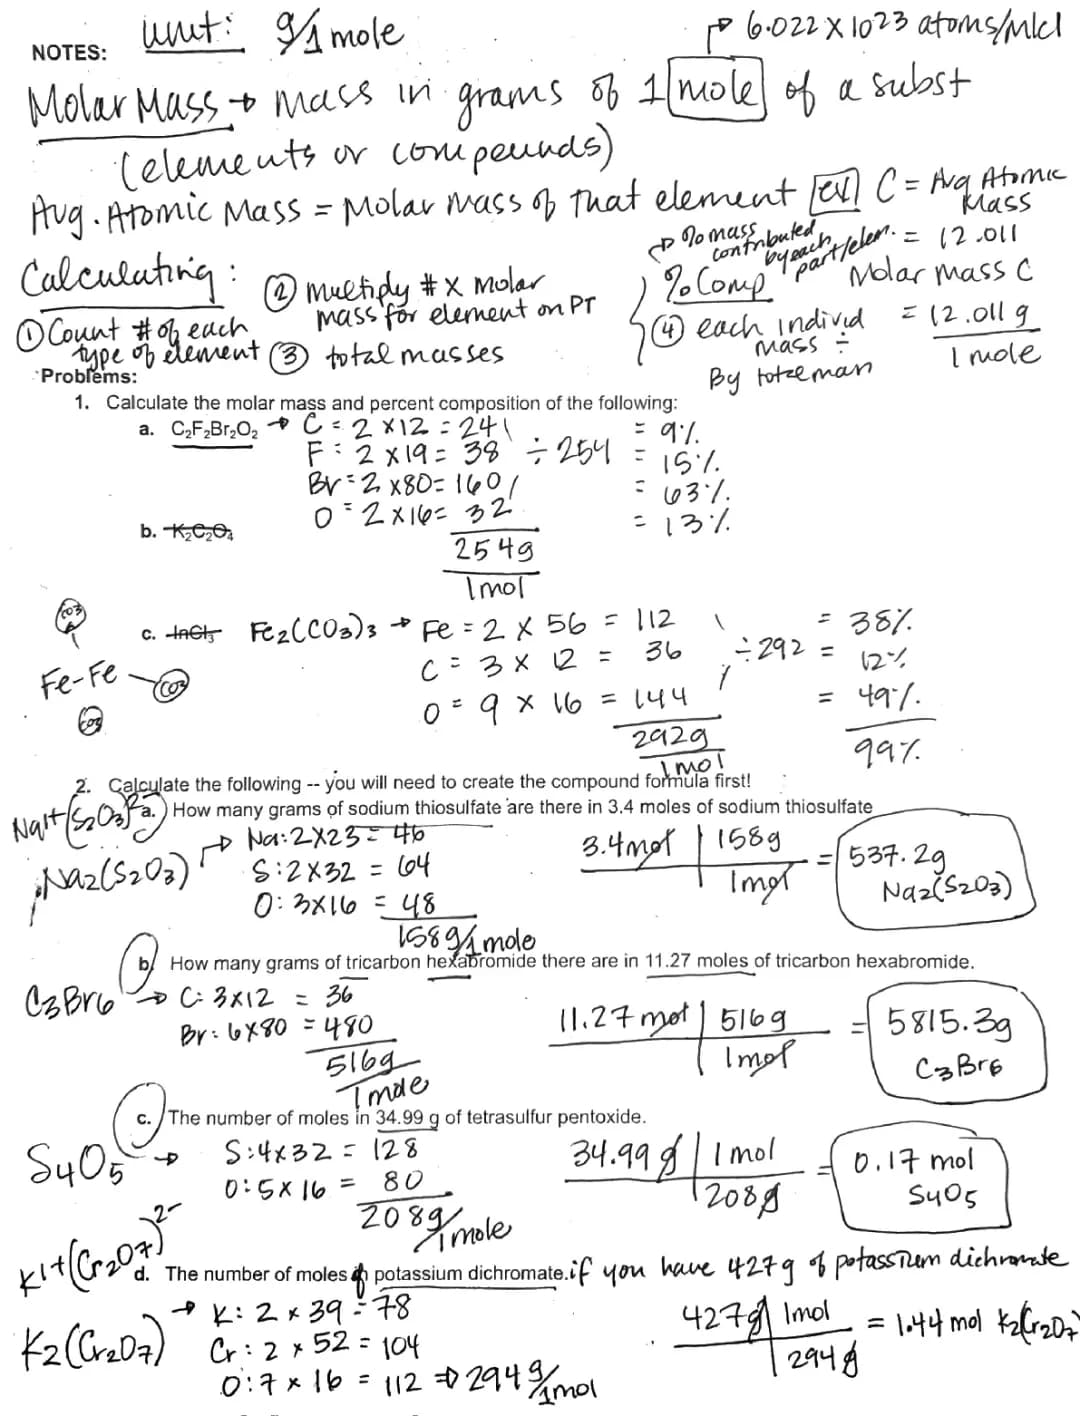 NOTES: unit: g/1 mole
→ 6.022 X 1023 atoms/mlcl
Molar Mass → mass in grams of 1 mole of a subst
(elements or compounds)
Avg. Atomic Mass = Molar Mass of that element ex) C = Avg Atomic Mass
= 12.011
Molar mass C
= 12.011 g
1 mole
Calculating:
① Count # of each type of element
② multiply # X molar mass for element on PT
③ total masses
% Comp → % mass contributed by each part/elem.
④ each individ mass ÷
By total man
Problems:
1. Calculate the molar mass and percent composition of the following:
a. C₂F₂Br₂O₂ → C = 2 X 12 = 24 = 9%
F = 2 X 19 = 38 ÷ 254 = 15%
Br = 2 X 80 = 160 = 63%
O = 2 X 16 = 32 = 13%
254g
1mol
b. K₂C₂O₄
c. InCl₃ Fe₂(CO₃)₃ → Fe = 2 X 56 = 112 = 38%
C = 3 X 12 = 36 ÷ 292 = 12%
O = 9 X 16 = 144 = 49%
292g 99%
1mol
CO3
Fe-Fe CO3
CO3
2. Calculate the following -- you will need to create the compound formula first!
Na1+(S2O3)2-
a. How many grams of sodium thiosulfate are there in 3.4 moles of sodium thiosulfate
Na2(S2O3) → Na: 2X23 = 46
S: 2X32 = 64
O: 3X16 = 48
158g/1mole
3.4mol | 158g = 537.2g
1mol Na2(S2O3)
b. How many grams of tricarbon hexabromide there are in 11.27 moles of tricarbon hexabromide.
C3Br6 → C: 3X12 = 36
Br: 6X80 = 480
516g
1mole
11.27 mol | 516g = 5815.3g
1mol C3Br6
c. The number of moles in 34.99 g of tetrasulfur pentoxide.
S4O5 → S: 4x32 = 128
O: 5x16 = 80
208g/1mole
34.99 g | 1 mol = 0.17 mol
208g S4O5
K1+(Cr2O7)2-
d. The number of moles of potassium dichromate. if you have 427g of potassium dichromate
K2(Cr2O7) → K: 2 x 39 = 78
Cr: 2 x 52 = 104
O: 7 x 16 = 112 ⇒ 294g/1mol
427g | 1mol = 1.44 mol K2(Cr2O7)
294g